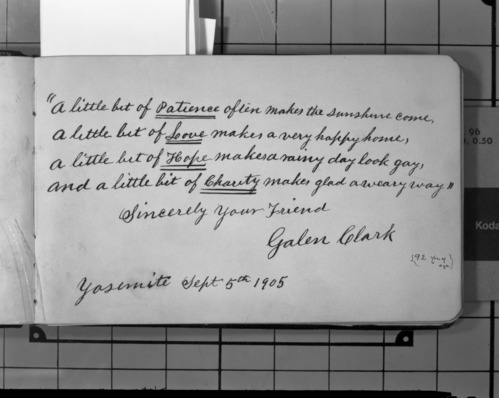 "A little bit of Patience often makes the sunshine come,
a little bit of Love makes a very happy home,
a little bit of Hope makes a rainy day look gay,
and a little bit of Charity makes glad a weary way"
Sincerely Your Friend
Galen Clark
(92 yrs age)
Yosemite Sept 5th 1905
96
0.50
Koda